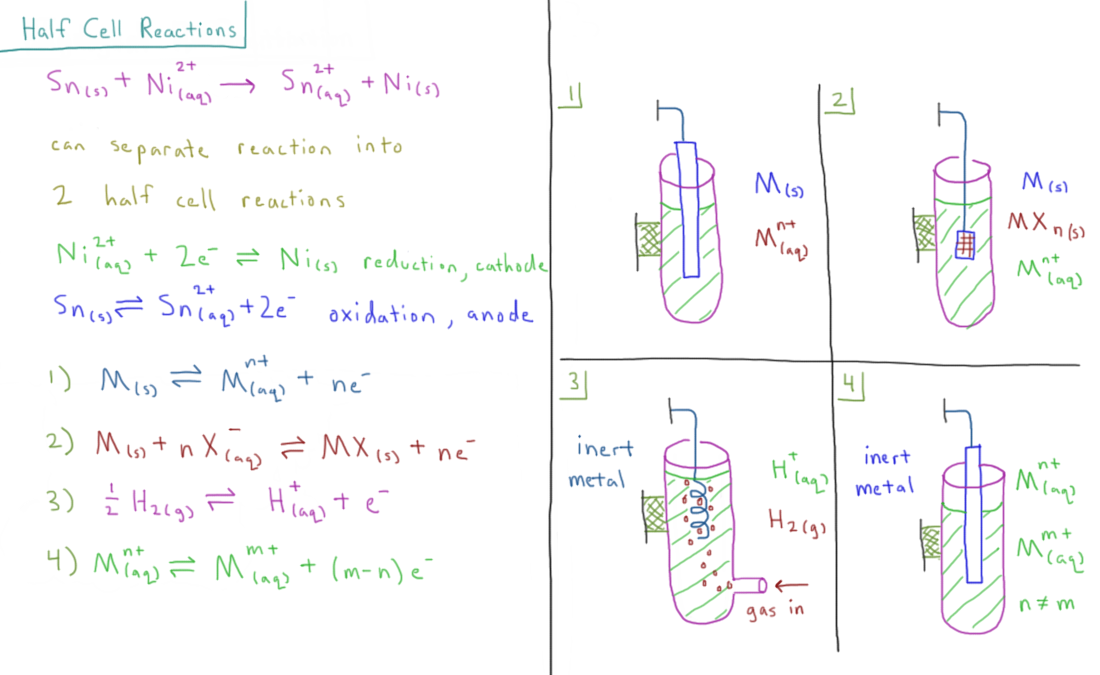 Half Cell Reactions
Sn(s) + Ni²⁺(aq) → Sn²⁺(aq) + Ni(s)
can separate reaction into
2 half cell reactions
Ni²⁺(aq) + 2e⁻ ⇌ Ni(s) reduction, cathode
Sn(s) ⇌ Sn²⁺(aq) + 2e⁻ oxidation, anode
1) M(s) ⇌ Mⁿ⁺(aq) + ne⁻
2) M(s) + n X⁻(aq) ⇌ MX(s) + ne⁻
3) ½ H₂(g) ⇌ H⁺(aq) + e⁻
4) Mⁿ⁺(aq) ⇌ Mᵐ⁺(aq) + (m-n) e⁻
1)
M(s)
Mⁿ⁺(aq)
2)
M(s)
MXn(s)
Mⁿ⁺(aq)
3)
inert
metal
H⁺(aq)
H₂(g)
gas in
4)
inert
metal
Mⁿ⁺(aq)
Mᵐ⁺(aq)
n ≠ m